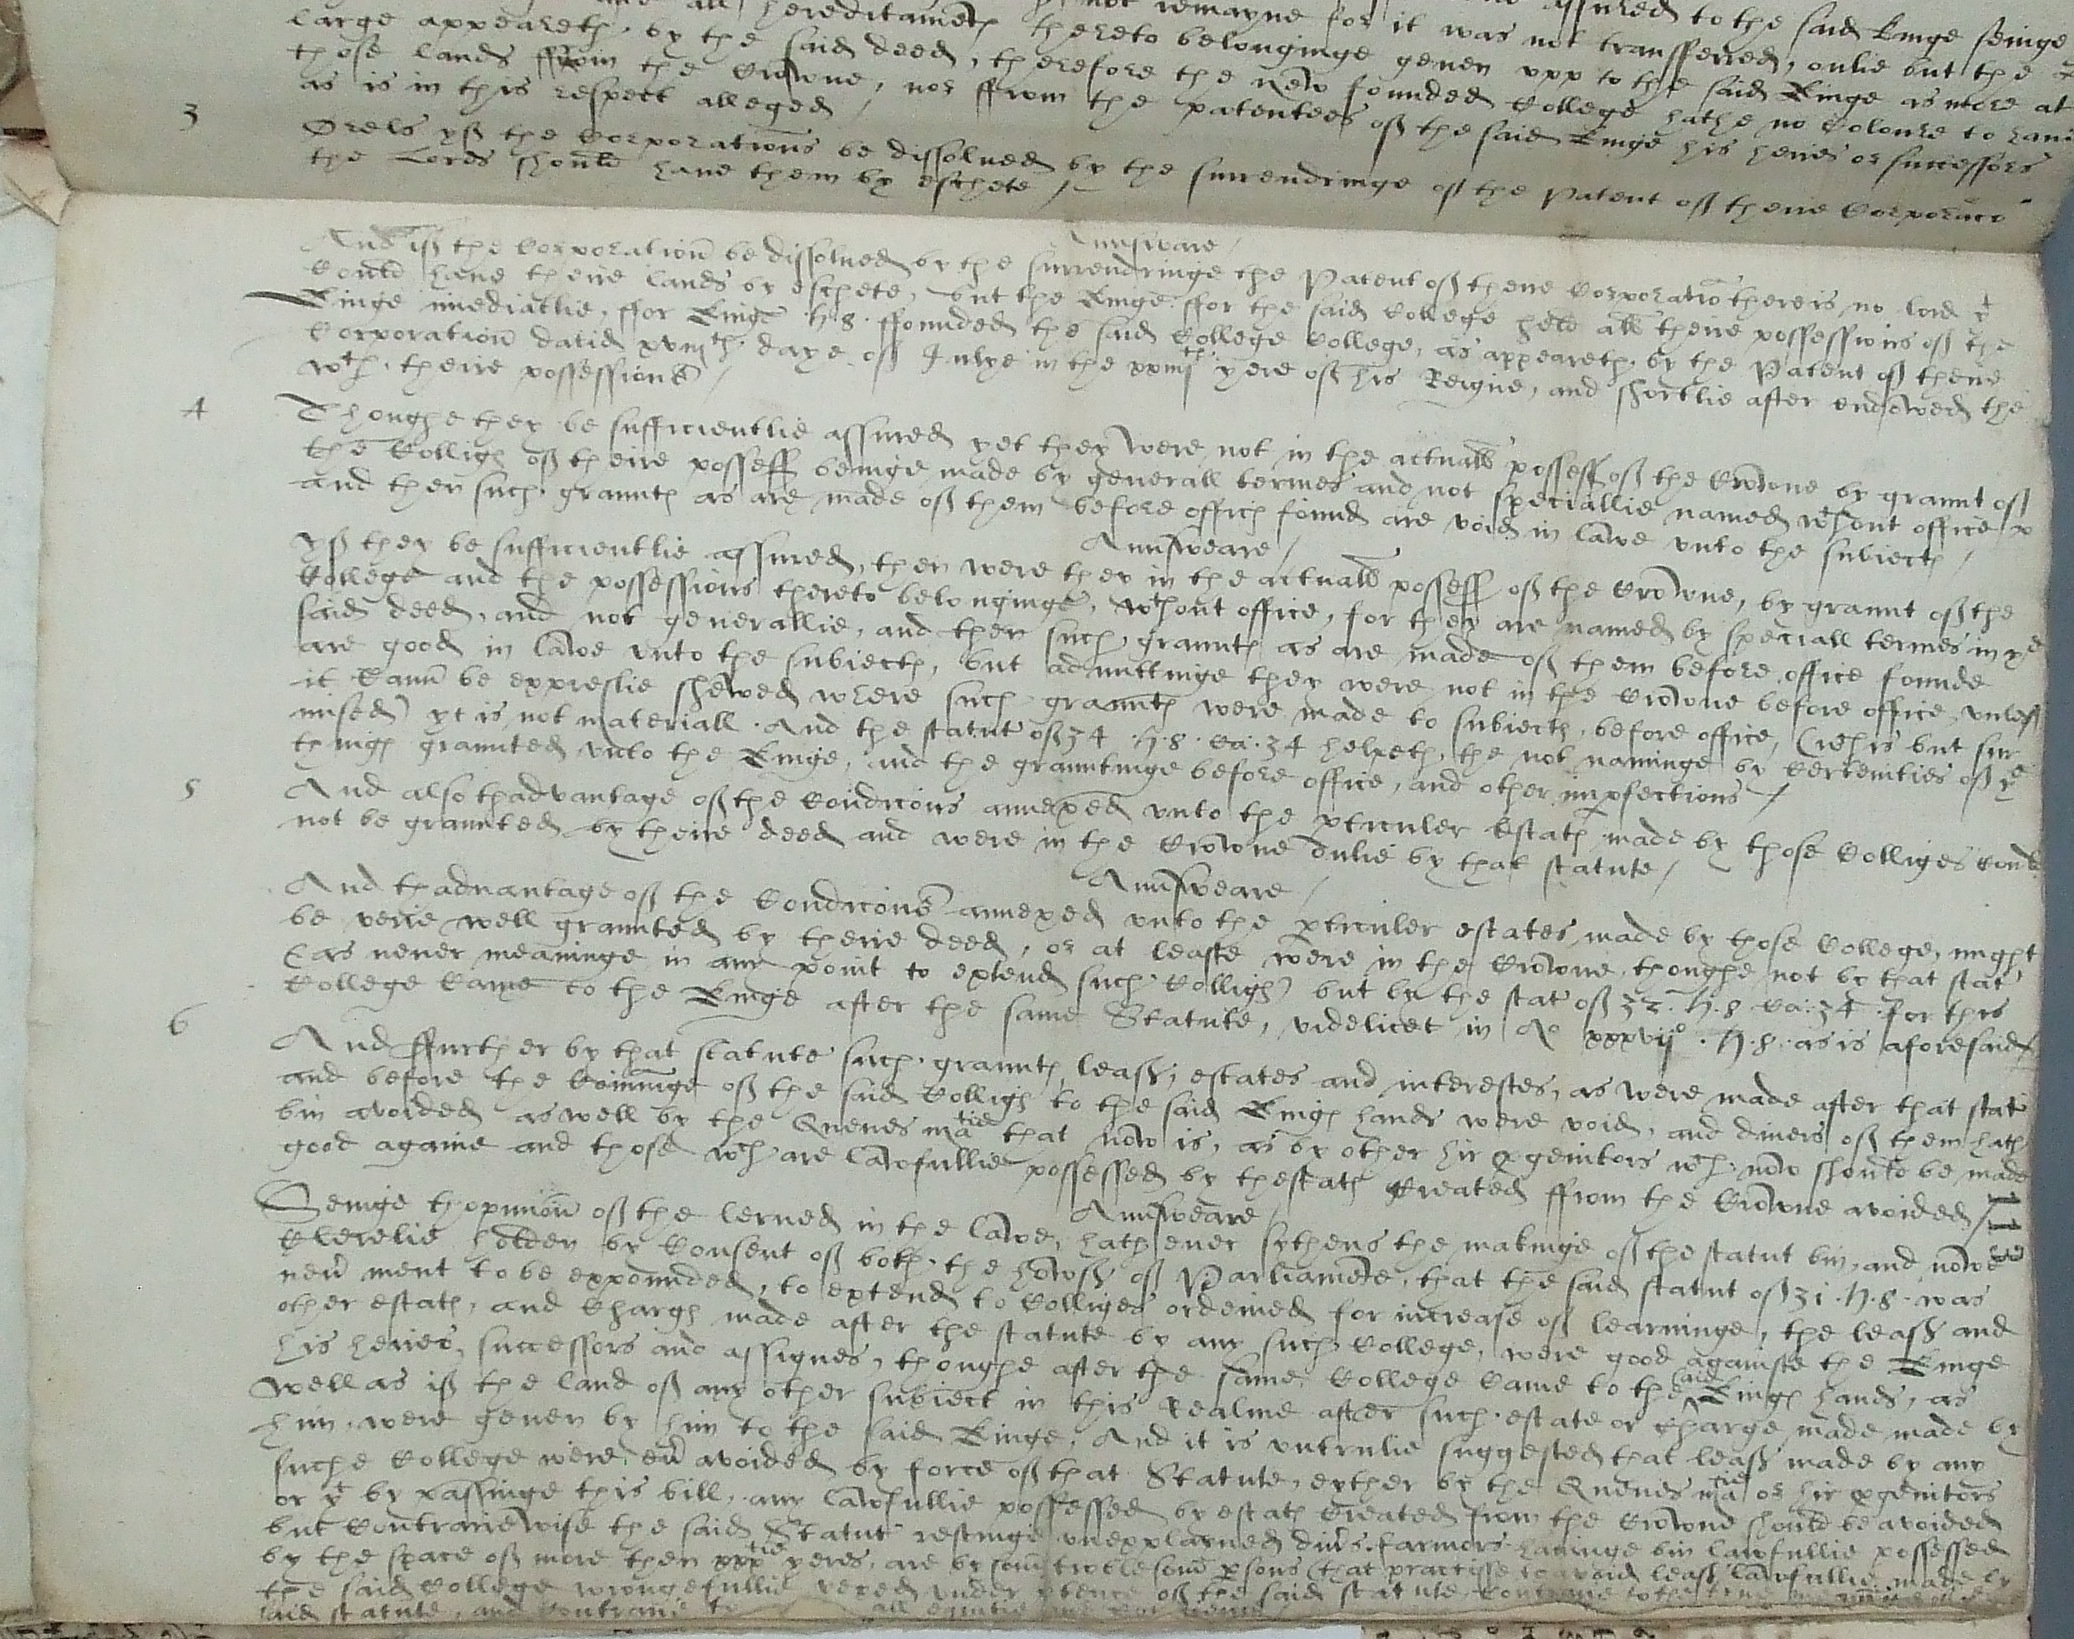 and all hereditamentes thereto belonginge geven upp to the said Kinge as more at
large appeareth by the said deed, therefore the new founded College hathe no Coloure to have
those lands ffrom the Crowne, nor ffrom the patentees off the said Kinge his heires or successors
as is in this respect alleged /
3 Orels yff the Corporations be dissolved by the surrendringe off the Patent off theire Corporatio
the Lords should have them by eschete /
Aunsweare /
And iff the Corporation be dissolved by the surrendringe the Patent off theire Corporatio there is no lord yt
Could have theire lands by eschete, but the Kinge. ffor the said College held all theire possessions off the
Kinge imediatlie, ffor Kinge .H.8. ffounded the said College College, as appeareth by the Patent off theire
Corporation datid xviijth daye off Julye in the yere off his Reigne, and shortlie after endowed the
wth theire possessions /
4 Thoughe they be sufficientlie assured yet they were not in the actuall possess off the Crowne by graunt off
the Collighes off theire possess beinge made by generall termes and not speciallie named wthout office
and then such grauntes as are made off them before offices found are void in lawe vnto the subiectes /
Aunsweare /
Yff they be sufficientlie assured, then were they in the actuall possess off the Crowne, by graunt off the
College and the possessions thereto belonginge, wthout office, for they are named by speciall termes in ye
said deed, and not generallie, and then such grauntes as are made off them before office founde
are good in lawe vnto the subiectes, but admittinge they were not in the Crowne before office, vnless
it Cann be expreslie shewed where such grauntes were made to subiectes, before office, (wch is but sur
mised) yt is not materiall. And the statut off 34 .H.8. Ca: 34 helpeth, the not naminge by Certenties off ye
thinges graunted vnto the Kinge, and the grauntinge before office, and other imperfections /
5 And also thadvantage off the Condicons annexed vnto the pticuler Estates made by those Colliges Could
not be graunted by theire deed and were in the Crowne onlie by that statute /
Aunsweare /
And thadvantage off the Condicons annexed vnto the pticuler estates, made by those College, might
be verie well graunted by theire deed, or at leaste were in the Crowne, thoughe not by that stat
(as never meaninge in any point to extend such Collighes) but by the stat off 32. H.8 Ca: 34 for this
College Came to the Kinge after the same Statute, videlicet in Ao xxxvijo .H.8. as is aforesaid /
6 And ffurther by that statute such grauntes, leasses, estates and interestes, as were made after that stat
and before the Comminge off the said Collighes to the said Kinges hands were void, and divers off them hath
bin avoided as well by the Quenes matie that now is, as by other hir pgenitors wch now should be made
good againe and those wch are lawfullie possessed by thestates Created ffrom the Crowne avoided /
Aunsweare /
Seinge thopinion off the lerned in the lawe, hath ever sythens the makinge off the statut bin, and nowe
Clerelie holden by Consent off both the howses off Parliamente, that the said statut off 31 .H.8. was
never ment to be expounded, to extend to Colliges ordeined for increase off learninge, the leasses and
other estates, and Charges made after the statute by any such College, were good againste the Kinge
his heires, successors and assignes, thoughe after the same College Came to the said Kinges hands, as
well as iff the land off any other subiect in this Realme after such estate or Charge made made by
him, were geven by him to the said Kinge, And it is vntrulie suggested that leasses made by any
suche College were ever avoided by force off that Statute, eyther by the Quenes matie or hir pgenitors
or yt by passinge this bill, any lawfullie possessed by estates Created from the Crowne should be avoided
but Contrariewise the said Statut restinge vnexplayned divers farmors havinge bin lawfullie possessed
by the space off more then xxxtie yeres, are by som troblesom psons (that practisse to avoid leasses lawfullie made by
the said College) wrongefullie vexed vnder ptence off the said statute Contrarie to the
said statute, and Contrarie to all equitie